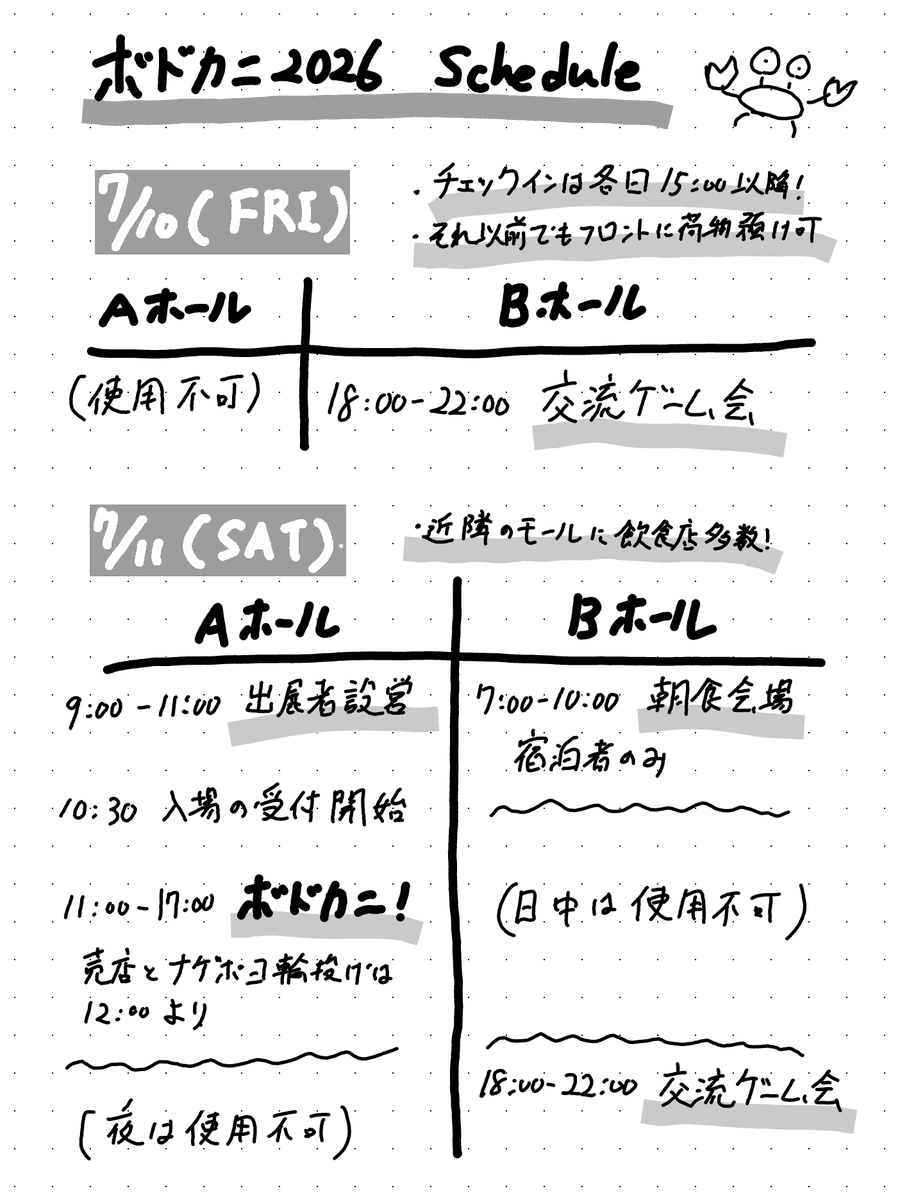 ボドカニ2026 Schedule
7/10(FRI)
・チェックインは各日15:00以降!
・それ以前でもフロントに荷物預け可
Aホール
Bホール
(使用不可)
18:00-22:00 交流ゲーム会
7/11(SAT)
・近隣のモールに飲食店多数!
Aホール
Bホール
9:00-11:00 出展者設営
10:30 入場の受付開始
11:00-17:00 ボドカニ!
売店とナゲボヨ輪投げは
12:00より
(夜は使用不可)
7:00-10:00 朝食会場
宿泊者のみ
(日中は使用不可)
18:00-22:00 交流ゲーム会